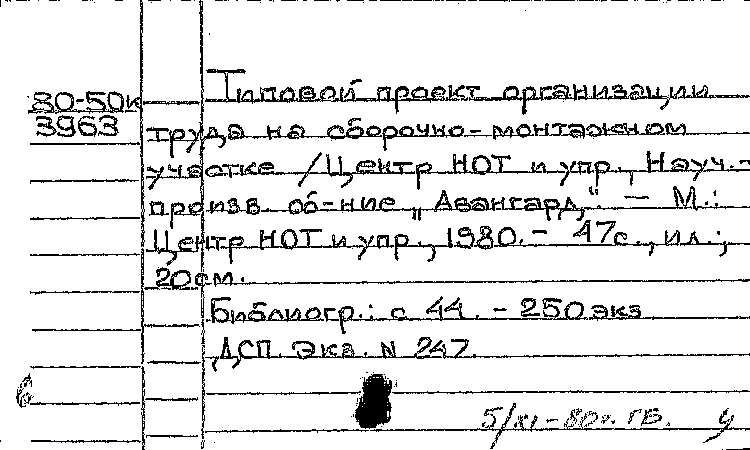 80-50к
3963
Типовой проект организации
труда на сборочно-монтажном
участке /Центр НОТ и упр., Науч.-
произв. об-ние „Авангард“. — М.:
Центр НОТ и упр., 1980. - 47с., ил.;
20см.
Библиогр.: с 44. - 250экз
ДСП. Экз. N 247.
5/XI-80г. ГВ.